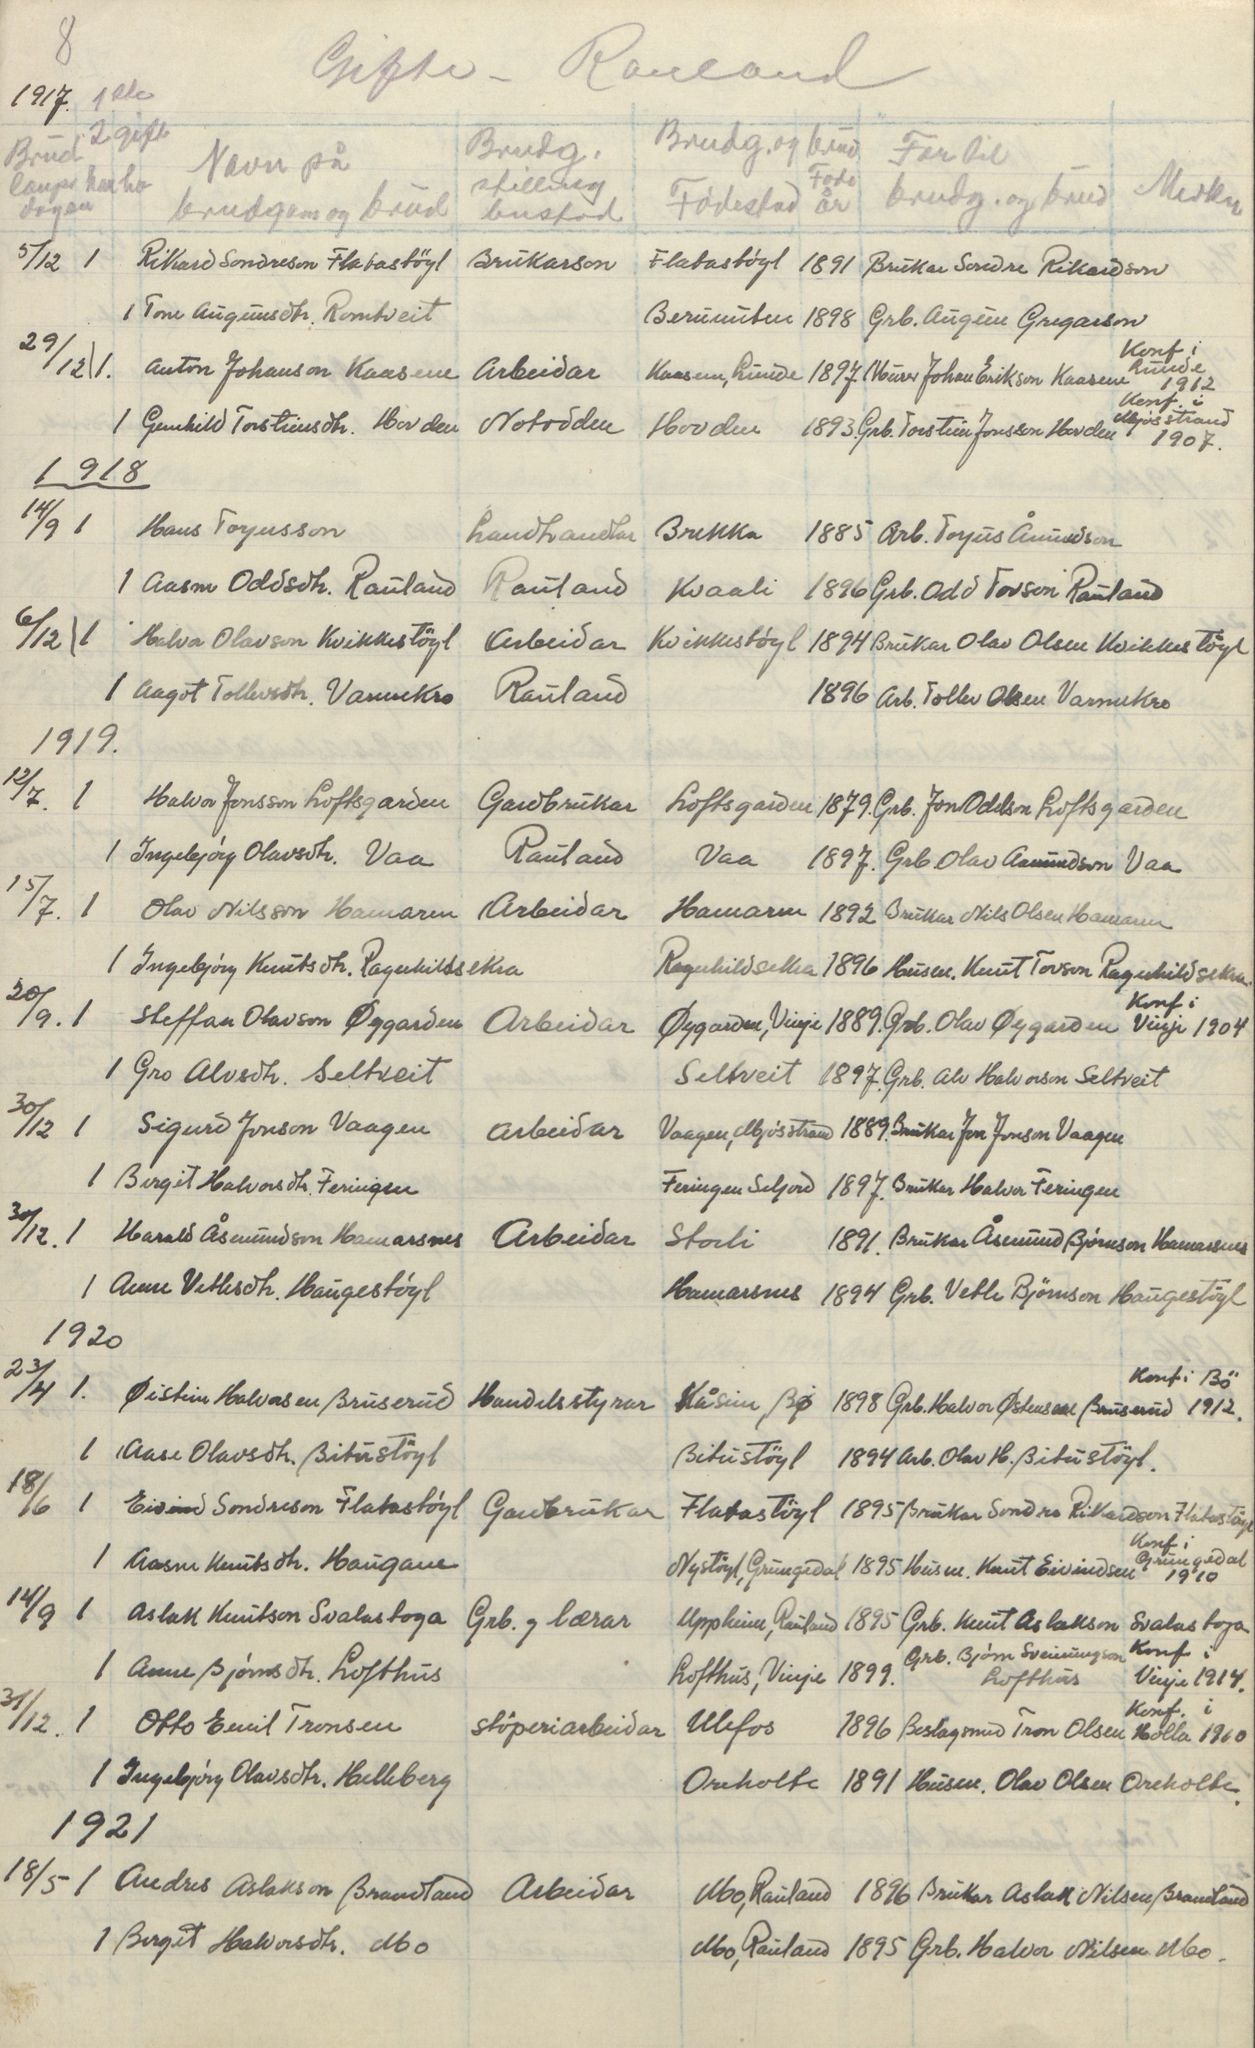 8
Gifte - Rauland
1917. 1ste
2 gift
Brud Navn på Brudg. Brudg. og brud Far til
laups kar ho stilling Føde
dagen brudgom og brud bustad Fødestad år brudg. og brud Merkn
5/12 1 Rikard Sondreson Flatastöyl Brukarson Flatastöyl 1891 Brukar Sondre Rikardson
1 Tone Augunsdtr. Romtveit Berunuten 1898 Grb. Augun Gregarson
29/12 1. Anton Johanson Kaasene Arbeidar Kaasene, Lunde 1897 Murer Johan Erikson Kaasene Konf i Lunde 1912
1 Gunhild Torsteinsdtr. Hovden Notodden Hovden 1893. Grb. Torstein Jonsson Hovden Konf. i Mjösstrand 1907.
1918
14/9 1 Hans Torjusson Landhandlar Brekka 1885 Arb. Torjus Åmundson
1 Aasne Oddsdtr. Rauland Rauland Kvaali 1896 Grb. Odd Tovson Rauland
6/12 1 Halvor Olavson Kvikkestöyl Arbeidar Kvikkestöyl 1894 Brukar Olav Olsen Kvikkestöyl
1 Aagot Tollevsdtr. Varmekro Rauland 1896 Arb. Tollev Olsen Varmekro
1919.
12/7. 1 Halvor Jonsson Loftsgarden Gardbrukar Loftsgarden 1879. Grb. Jon Oddson Loftsgarden
1 Ingebjörg Olavsdtr. Vaa Rauland Vaa 1897. Grb. Olav Aamundson Vaa
15/7. 1 Olav Nilsson Hamaren Arbeidar Hamaren 1892 Brukar Nils Olsen Hamaren
1 Ingebjörg Knutsdtr. Ragnhildsekra Ragnhildsekra 1896 Husm. Knut Tovson Ragnhildsekra.
20/9. 1 Steffan Olavson Øygarden Arbeidar Øygarden, Vinje 1889. Grb. Olav Øygarden Konf i Vinje 1904
1 Gro Alvsdtr. Seltveit Seltveit 1897. Grb. Alv Halvorson Seltveit
30/12 1 Sigurd Jonson Vaagen Arbeidar Vaagen, Mjösstrand 1889. Brukar Jon Jonson Vaagen
1 Birgit Halvorsdtr. Feringen Feringen Seljord 1897. Brukar Halvor Feringen
30/12. 1 Harald Åsmundson Hamarsnes Arbeidar Stodi 1891. Brukar Åsmund Björnson Hamarsnes
1 Anne Vetlesdtr. Haugestöyl Hamarsnes 1894 Grb. Vetle Björnson Haugestöyl
1920
23/4 1. Øistein Halvorsen Bruserud Handelsstyrar Håsein, Bø 1898 Grb. Halvor Østensen Bruserud Konf i Bö 1912.
1 Aase Olavsdtr. Bitustöyl Bitustöyl 1894 Arb. Olav H. Bitustöyl.
18/6 1 Eivind Sondreson Flatastöyl Gardbrukar Flatastöyl 1895 Brukar Sondre Rikardson Flatastöyl
1 Aasne Knutsdtr. Haugane Nystöyl, Grungedal 1895 Husm. Knut Eivindsen Konf i Grungedal 1910
14/9 1 Aslak Knutson Svalastoga Grb. og lærar Uppheim, Rauland 1895 Grb. Knut Aslakson Svalastoga
1 Anne Björnsdtr. Lofthus Lofthus, Vinje 1899. Grb. Björn Sveinungson Lofthus Konf i Vinje 1914.
31/12. 1 Otto Emil Tronsen Stöperiarbeidar Ulefos 1896 Beslagsmed Tron Olsen Konf. i Holla 1910
1 Ingebjörg Olavsdtr. Helleberg Oreholte 1891 Husm. Olav Olsen Oreholte.
1921
18/5 1 Andres Aslakson Brandland Arbeidar Mo, Rauland 1896 Brukar Aslak Nilsen Brandland
1 Birgit Halvorsdtr. Mo Mo, Rauland 1895 Grb. Halvor Nilsen Mo.